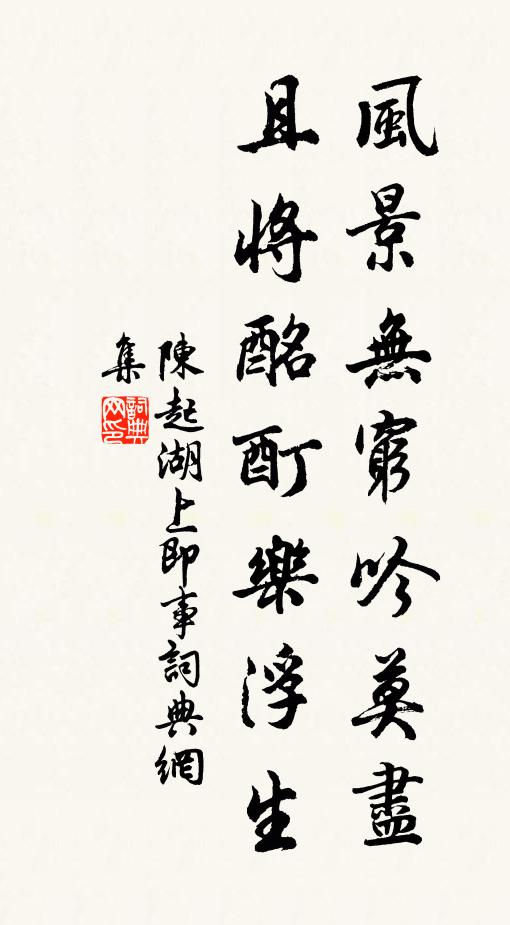 風景無窮吟莫盡
且將酩酊樂浮生
陳起湖上即事詞典網
集
詞典
网印